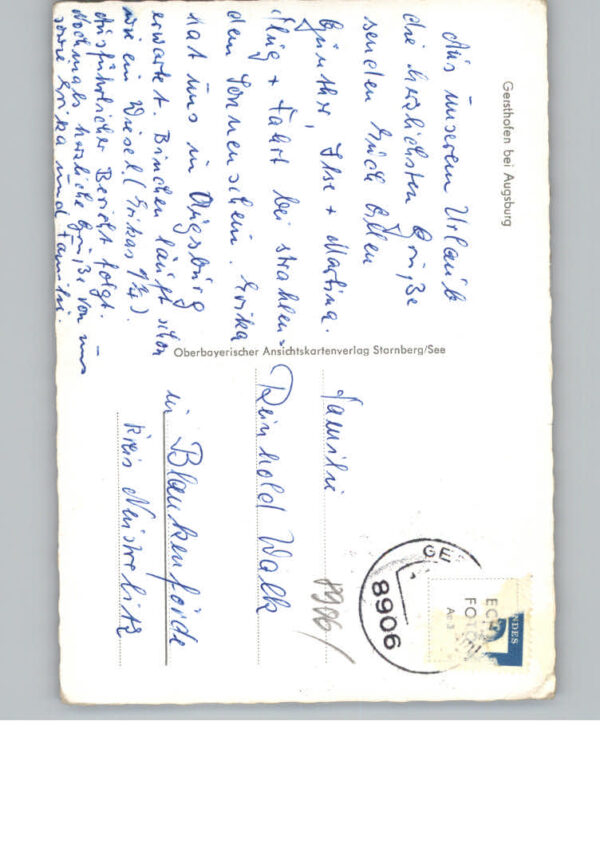 Gersthofen bei Augsburg
Aus unserem Urlaub
die herzlichsten Grüße
senden Euch allen
Günther, Ilse + Martina.
Flug + Fahrt bei strahlen-
dem Sonnenschein. Erika
hat uns in Augsburg
erwartet. Binchen läuft schon
wie ein Wiesel. (Erikas
Ausführlicher Bericht folgt. –
Nochmals herzliche Grüße von uns
sowie Erika und Familie.
Oberbayerischer Ansichtskartenverlag Starnberg/See
Familie
Reinhold Walk
in Blankenförde
Kreis Neustrelitz
8906/
GE
8906
ECH
FOTO
NDES